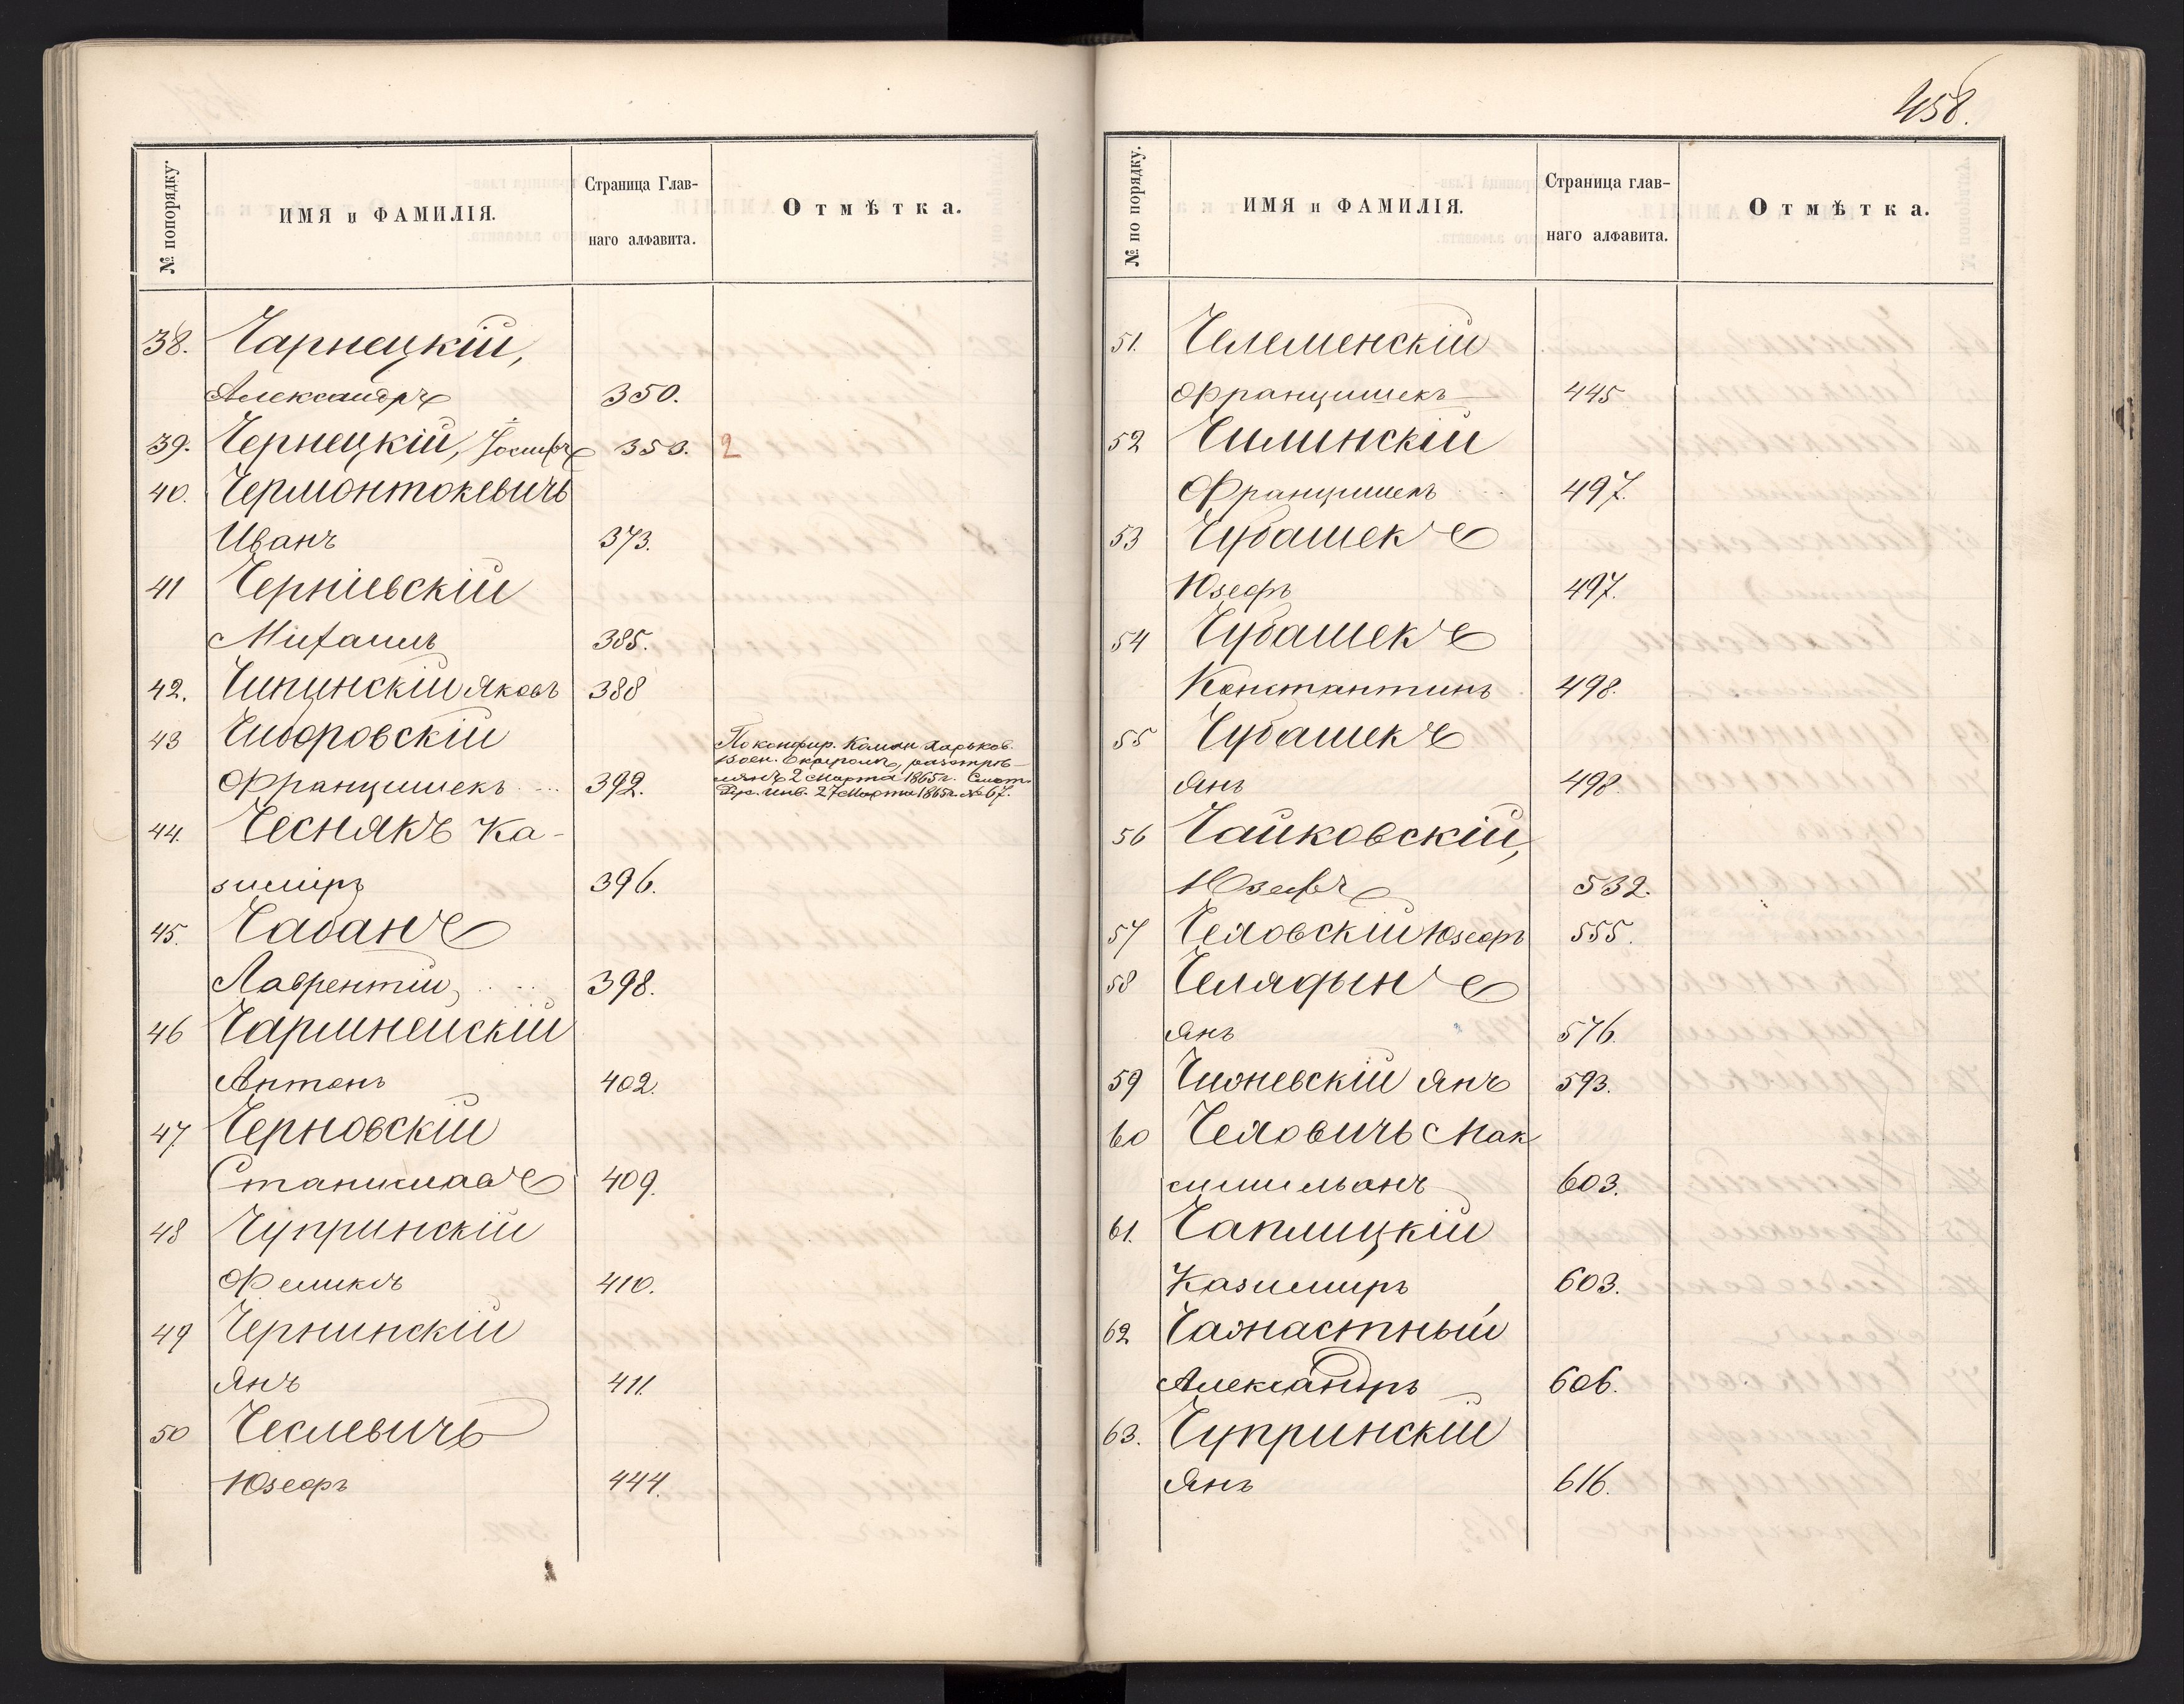 № попорядку.
ИМЯ и ФАМИЛІЯ.
Страница Глав-
наго алфавита.
Отмѣтка.
38. Чарнецкій,
Александръ 350.
39. Чернецкій, Іосифъ 353. 2
40. Чермонтокевичъ
Иванъ 373.
41 Черніевскій
Михаилъ 385.
42. Чипинскій Яковъ 388
43 Чиборовскій
Францишекъ 392.
По конфир. Коман. Харьков.
Воен. Округомъ, разстрѣ-
лянъ 2 Марта 1865 г. Смотр.
Рус. Инв. 27 Марта 1865 г. № 67.
44. Чеснякъ Ка-
зиміръ 396.
45. Чабанъ
Лаврентій, 398.
46 Чарминейскій
Антонъ 402.
47 Черновскій
Станиславъ 409.
48 Чупринскій
Феликсъ 410.
49 Чернинскій
Янъ 411.
50 Чеслевичъ
Юзефъ 444.
458.
№ по порядку.
ИМЯ и ФАМИЛІЯ.
Страница глав-
наго алфавита.
Отмѣтка.
51. Челеменскій
Францишекъ 445
52 Чилинскій
Францишекъ 497.
53 Чубашекъ
Юзефъ 497.
54 Чубашекъ
Константинъ 498.
55 Чубашекъ
Янъ 498.
56 Чайковскій,
Юзефъ 532.
57 Чеховскій Юзефъ 555.
58 Челядынъ
Янъ 576.
59 Чижевскій Янъ 593.
60 Чеховичъ Мак
симильанъ 603.
61. Чаплицкій
Казимиръ 603.
62 Чажастный
Александръ 606.
63. Чупринскій
Янъ 616.